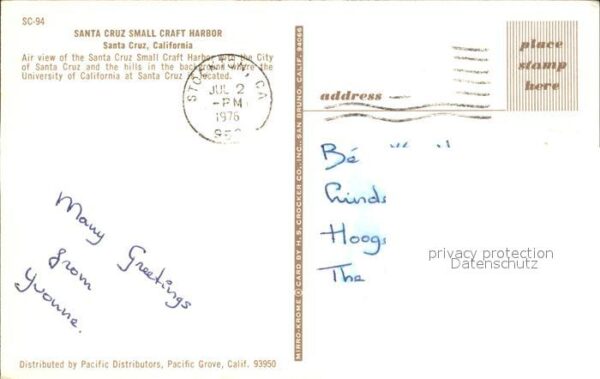 SC-94
SANTA CRUZ SMALL CRAFT HARBOR
Santa Cruz, California
Air view of the Santa Cruz Small Craft Harbor with the City
of Santa Cruz and the hills in the background where the
University of California at Santa Cruz is located.
CA
JUL 2
PM
1976
Many Greetings
from
Yvonne.
Distributed by Pacific Distributors, Pacific Grove, Calif. 93950
MIRRO-KROME ® CARD BY H. S. CROCKER CO., INC., SAN BRUNO, CALIF. 94066
place
stamp
here
address
Bé
Hoogs
The
privacy protection
Datenschutz